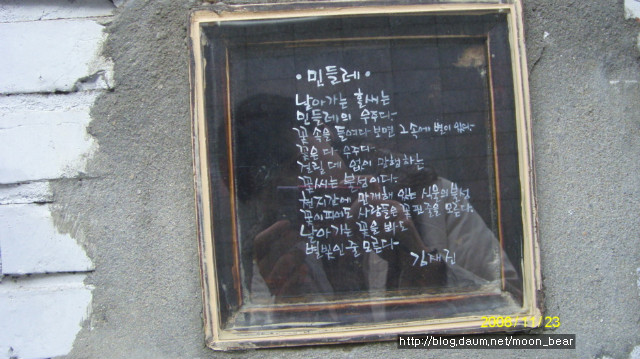 ·민들레·
날아가는 홀씨는
민들레의 우주다-
꽃 속을 들여다 보면 그 속에 별이 있다-
꽃은 다 우주다-
걸릴 데 없이 만행하는
꽃씨는 불성이다-
천지간에 만개해 있는 식물의 불성
꽃이 피어도 사람들은 꽃 핀 줄을 모른다-
날아가는 꽃을 봐도
별빛인 줄 모른다-
김재진
2008/11/23
http://blog.daum.net/moon_bear